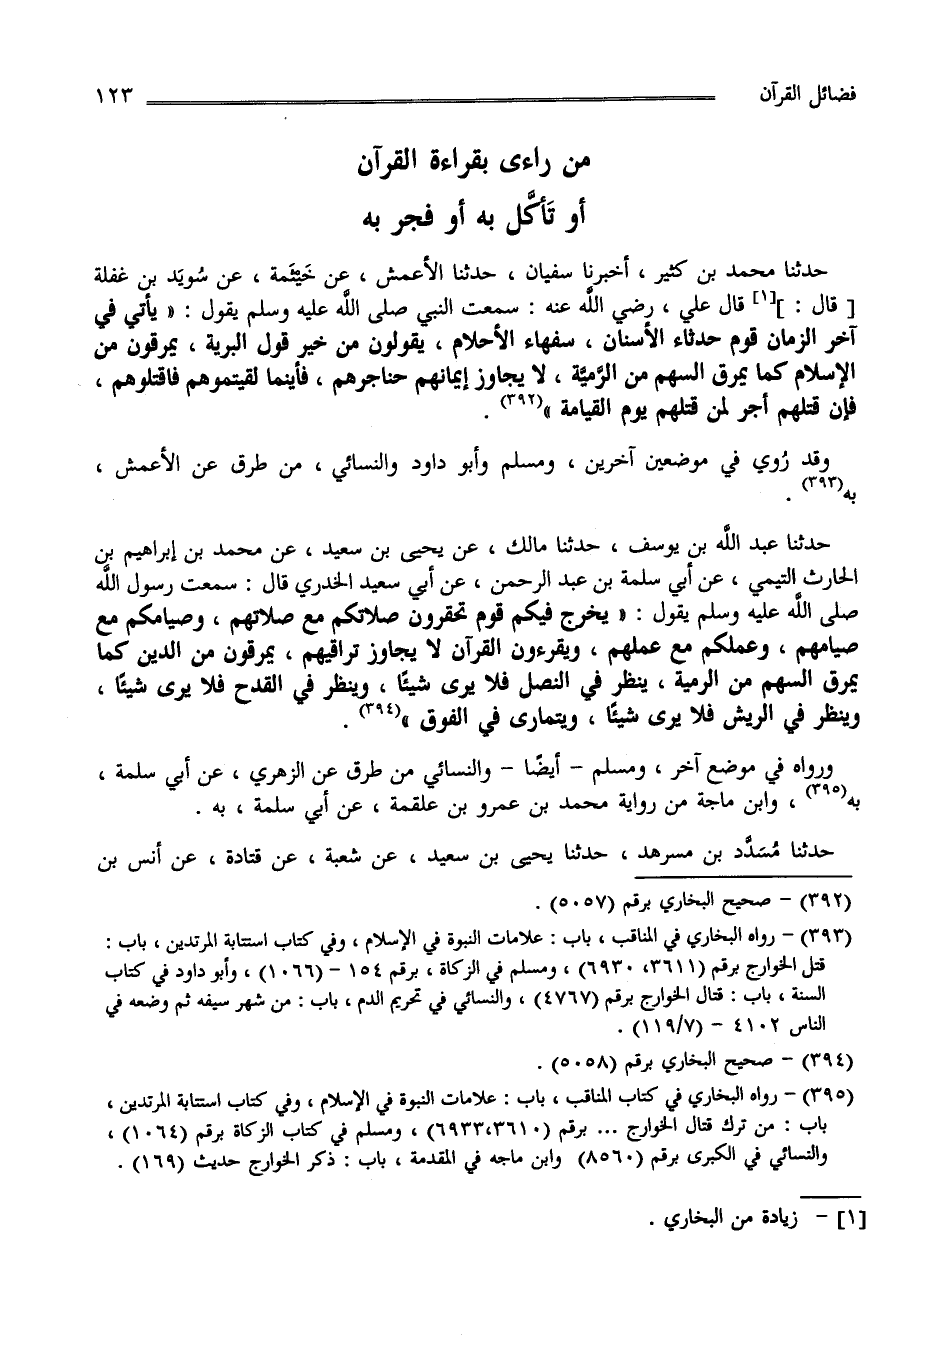 فضائل القرآن ١٢٣
من راءى بقراءة القرآن
أو تَأكَّل به أو فجر به
حدثنا محمد بن كثير ، أخبرنا سفيان ، حدثنا الأعمش ، عن خَيْثَمة ، عن سُويَد بن غفلة
[ قال : ][١] قال علي ، رضي اللَّه عنه : سمعت النبي صلى اللَّه عليه وسلم يقول : « يأتي في
آخر الزمان قوم حدثاء الأسنان ، سفهاء الأحلام ، يقولون من خير قول البرية ، يمرقون من
الإسلام كما يمرق السهم من الرَّميَّة ، لا يجاوز إيمانهم حناجرهم ، فأينما لقيتموهم فاقتلوهم ،
فإن قتلهم أجر لمن قتلهم يوم القيامة »(٣٩٢) .
وقد رُوي في موضعين آخرين ، ومسلم وأبو داود والنسائي ، من طرق عن الأعمش ،
به(٣٩٣) .
حدثنا عبد اللَّه بن يوسف ، حدثنا مالك ، عن يحيى بن سعيد ، عن محمد بن إبراهيم بن
الحارث التيمي ، عن أبي سلمة بن عبد الرحمن ، عن أبي سعيد الخدري قال : سمعت رسول اللَّه
صلى اللَّه عليه وسلم يقول : « يخرج فيكم قوم تحقرون صلاتكم مع صلاتهم ، وصيامكم مع
صيامهم ، وعملكم مع عملهم ، ويقرءون القرآن لا يجاوز تراقيهم ، يمرقون من الدين كما
يمرق السهم من الرمية ، ينظر في النصل فلا يرى شيئًا ، وينظر في القدح فلا يرى شيئًا ،
وينظر في الريش فلا يرى شيئًا ، ويتمارى في الفوق »(٣٩٤) .
ورواه في موضع آخر ، ومسلم – أيضًا – والنسائي من طرق عن الزهري ، عن أبي سلمة ،
به(٣٩٥) ، وابن ماجة من رواية محمد بن عمرو بن علقمة ، عن أبي سلمة ، به .
حدثنا مُسَدَّد بن مسرهد ، حدثنا يحيى بن سعيد ، عن شعبة ، عن قتادة ، عن أنس بن
(٣٩٢) – صحيح البخاري برقم (٥٠٥٧) .
(٣٩٣) – رواه البخاري في المناقب ، باب : علامات النبوة في الإسلام ، وفي كتاب استتابة المرتدين ، باب :
قتل الخوارج برقم (٣٦١١، ٦٩٣٠) ، ومسلم في الزكاة ، برقم ١٥٤ – (١٠٦٦) ، وأبو داود في كتاب
السنة ، باب : قتال الخوارج برقم (٤٧٦٧) ، والنسائي في تحريم الدم ، باب : من شهر سيفه ثم وضعه في
الناس ٤١٠٢ – (١١٩/٧) .
(٣٩٤) – صحيح البخاري برقم (٥٠٥٨) .
(٣٩٥) – رواه البخاري في كتاب المناقب ، باب : علامات النبوة في الإسلام ، وفي كتاب استتابة المرتدين ،
باب : من ترك قتال الخوارج ... برقم (٦٩٣٣،٣٦١٠) ، ومسلم في كتاب الزكاة برقم (١٠٦٤) ،
والنسائي في الكبرى برقم (٨٥٦٠) وابن ماجه في المقدمة ، باب : ذكر الخوارج حديث (١٦٩) .
[١] – زيادة من البخاري .